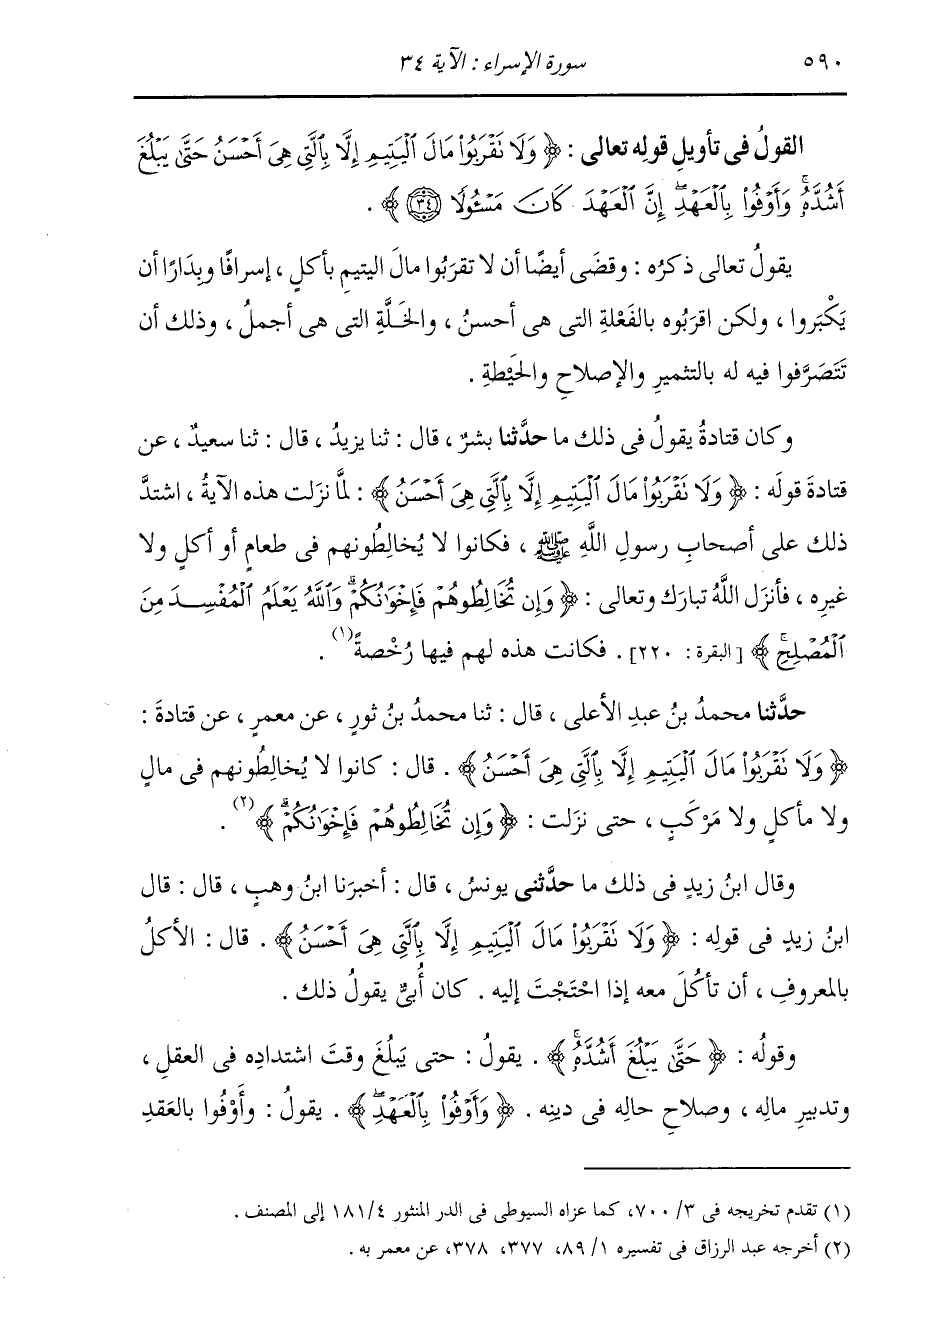 ٥٩٠ سورة الإسراء : الآية ٣٤
القولُ فى تأويلِ قوله تعالى : ﴿ وَلَا نَقْرَبُوا۟ مَالَ ٱلْيَتِيمِ إِلَّا بِٱلَّتِى هِىَ أَحْسَنُ حَتَّىٰ يَبْلُغَ
أَشُدَّهُۥۚ وَأَوْفُوا۟ بِٱلْعَهْدِۖ إِنَّ ٱلْعَهْدَ كَانَ مَسْـُٔولًا ﴿٣٤﴾ ﴾ .
يقولُ تعالى ذكرُه : وقضَى أيضًا أن لا تقرَبُوا مالَ اليتيمِ بأكلٍ ، إسرافًا وبِدَارًا أن
يَكْبَروا ، ولكن اقرَبُوه بالفَعْلةِ التى هى أحسنُ ، والخَلَّةِ التى هى أجملُ ، وذلك أن
تَتَصَرَّفوا فيه له بالتثميرِ والإصلاحِ والحَيْطةِ .
وكان قتادةُ يقولُ فى ذلك ما حدَّثنا بشرٌ ، قال : ثنا يزيدُ ، قال : ثنا سعيدٌ ، عن
قتادةَ قولَه : ﴿ وَلَا نَقْرَبُوا۟ مَالَ ٱلْيَتِيمِ إِلَّا بِٱلَّتِى هِىَ أَحْسَنُ ﴾ : لمَّا نزَلت هذه الآيةُ ، اشتدَّ
ذلك على أصحابِ رسولِ اللَّهِ ﷺ ، فكانوا لا يُخالِطُونهم فى طعامٍ أو أكلٍ ولا
غيرِه ، فأنزَل اللَّهُ تبارَك وتعالى : ﴿ وَإِن تُخَالِطُوهُمْ فَإِخْوَٰنُكُمْۚ وَٱللَّهُ يَعْلَمُ ٱلْمُفْسِدَ مِنَ
ٱلْمُصْلِحِۚ ﴾ [ البقرة : ٢٢٠] . فكانت هذه لهم فيها رُخْصةً(١) .
حدَّثنا محمدُ بنُ عبدِ الأعلى ، قال : ثنا محمدُ بنُ ثورٍ ، عن معمرٍ ، عن قتادةَ :
﴿ وَلَا نَقْرَبُوا۟ مَالَ ٱلْيَتِيمِ إِلَّا بِٱلَّتِى هِىَ أَحْسَنُ ﴾ . قال : كانوا لا يُخالِطُونهم فى مالٍ
ولا مأكلٍ ولا مَرْكَبٍ ، حتى نزَلت : ﴿ وَإِن تُخَالِطُوهُمْ فَإِخْوَٰنُكُمْۚ ﴾(٢) .
وقال ابنُ زيدٍ فى ذلك ما حدَّثنى يونسُ ، قال : أخبرَنا ابنُ وهبٍ ، قال : قال
ابنُ زيدٍ فى قولِه : ﴿ وَلَا نَقْرَبُوا۟ مَالَ ٱلْيَتِيمِ إِلَّا بِٱلَّتِى هِىَ أَحْسَنُ ﴾ . قال : الأكلُ
بالمعروفِ ، أن تأكُلَ معه إذا احْتَجْتَ إليه . كان أُبىٌّ يقولُ ذلك .
وقولُه : ﴿ حَتَّىٰ يَبْلُغَ أَشُدَّهُۥۚ ﴾ . يقولُ : حتى يَبلُغَ وقتَ اشتدادِه فى العقلِ ،
وتدبيرِ مالِه ، وصلاحِ حالِه فى دينِه . ﴿ وَأَوْفُوا۟ بِٱلْعَهْدِۖ ﴾ . يقولُ : وأَوْفُوا بالعَقدِ
(١) تقدم تخريجه فى ٣/ ٧٠٠، كما عزاه السيوطى فى الدر المنثور ١٨١/٤ إلى المصنف .
(٢) أخرجه عبد الرزاق فى تفسيره ١/ ٨٩، ٣٧٧، ٣٧٨، عن معمر به .